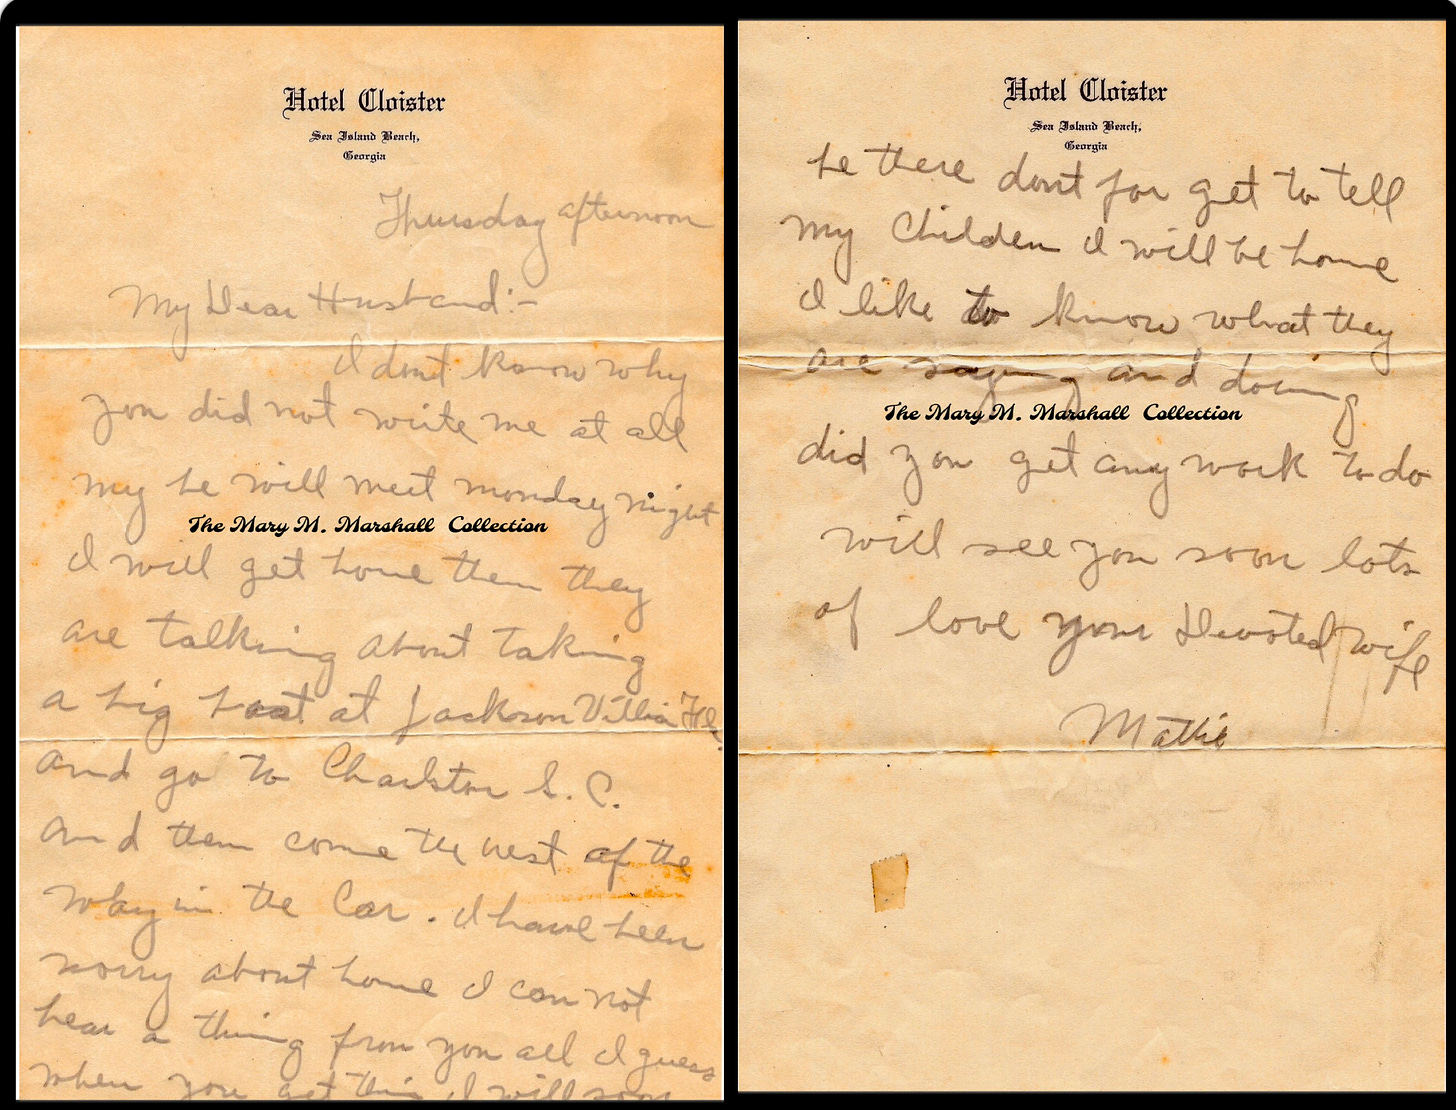 Hotel Cloister
Sea Island Beach,
Georgia
Thursday afternoon
My Dear Husband:-
I dont know why
you did not write me at all
my be will meet monday night
The Mary M. Marshall Collection
I will get home then they
are talking about taking
a big boat at Jackson Villia Fla.
and go to Charlston S.C.
and then come the rest of the
way in the Car. I have been
worry about home I can not
hear a thing from you all I guess
when you get this I will soon
Hotel Cloister
Sea Island Beach,
Georgia
be there dont for get to tell
my Children I will be home
I like to know what they
are saying and doing
The Mary M. Marshall Collection
did you get any work to do
will see you soon lots
of love your Devoted wife
Mattie